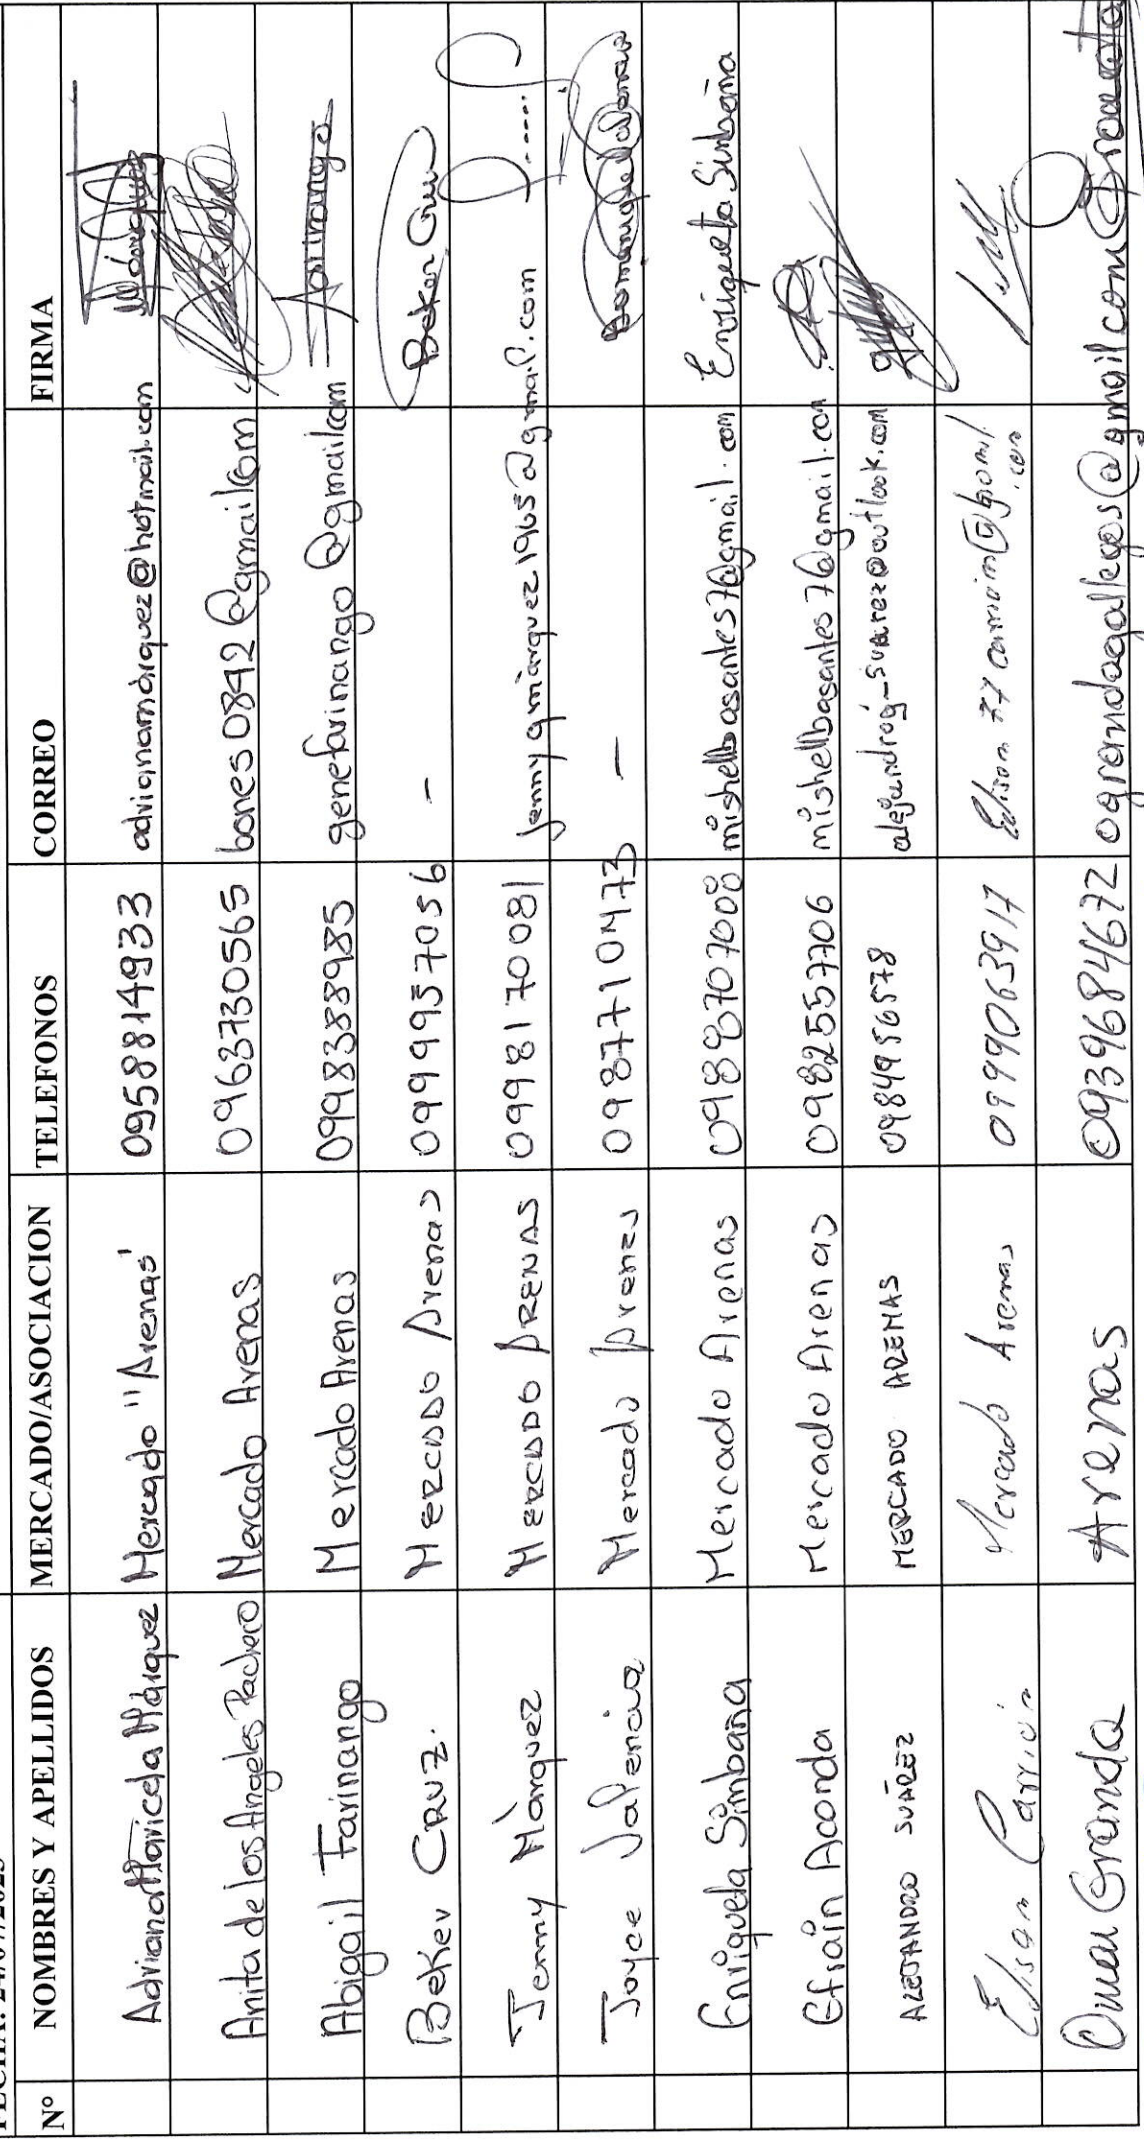 FECHA: 24/07/2025
N° NOMBRES Y APELLIDOS MERCADO/ASOCIACION TELEFONOS CORREO FIRMA
Adriana Maricela Márquez Mercado "Arenas" 0958814933 adrianamárquez@hotmail.com Márquez
Anita de los Angeles Pacheco Mercado Arenas 0963730565 bones0842@gmail.com
Abigail Farinango Mercado Arenas 0998388985 genefarinango@gmail.com Farinango
Beker CRUZ. MERCADO Arenas 0999957056 - Beker Cruz
Jenny Márquez MERCADO ARENAS 0998170081 jennygmárquez1965@gmail.com
Joyce Valencia Mercado Arenas 0987710473 -
Enriqueta Simbaña Mercado Arenas 0988707008 mishellbasantes7@gmail.com Enriqueta Simbaña
Efraín Aconda Mercado Arenas 0982557706 mishellbasantes7@gmail.com
ALEJANDRO SUÁREZ MERCADO ARENAS 0984956578 alejandrog_suarez@outlook.com
Elison Carrión Mercado Arenas 0999063917 Elison77carrion@gmail.com
Omar Granda Arenas 0939684672 ograndagallegos@gmail.com